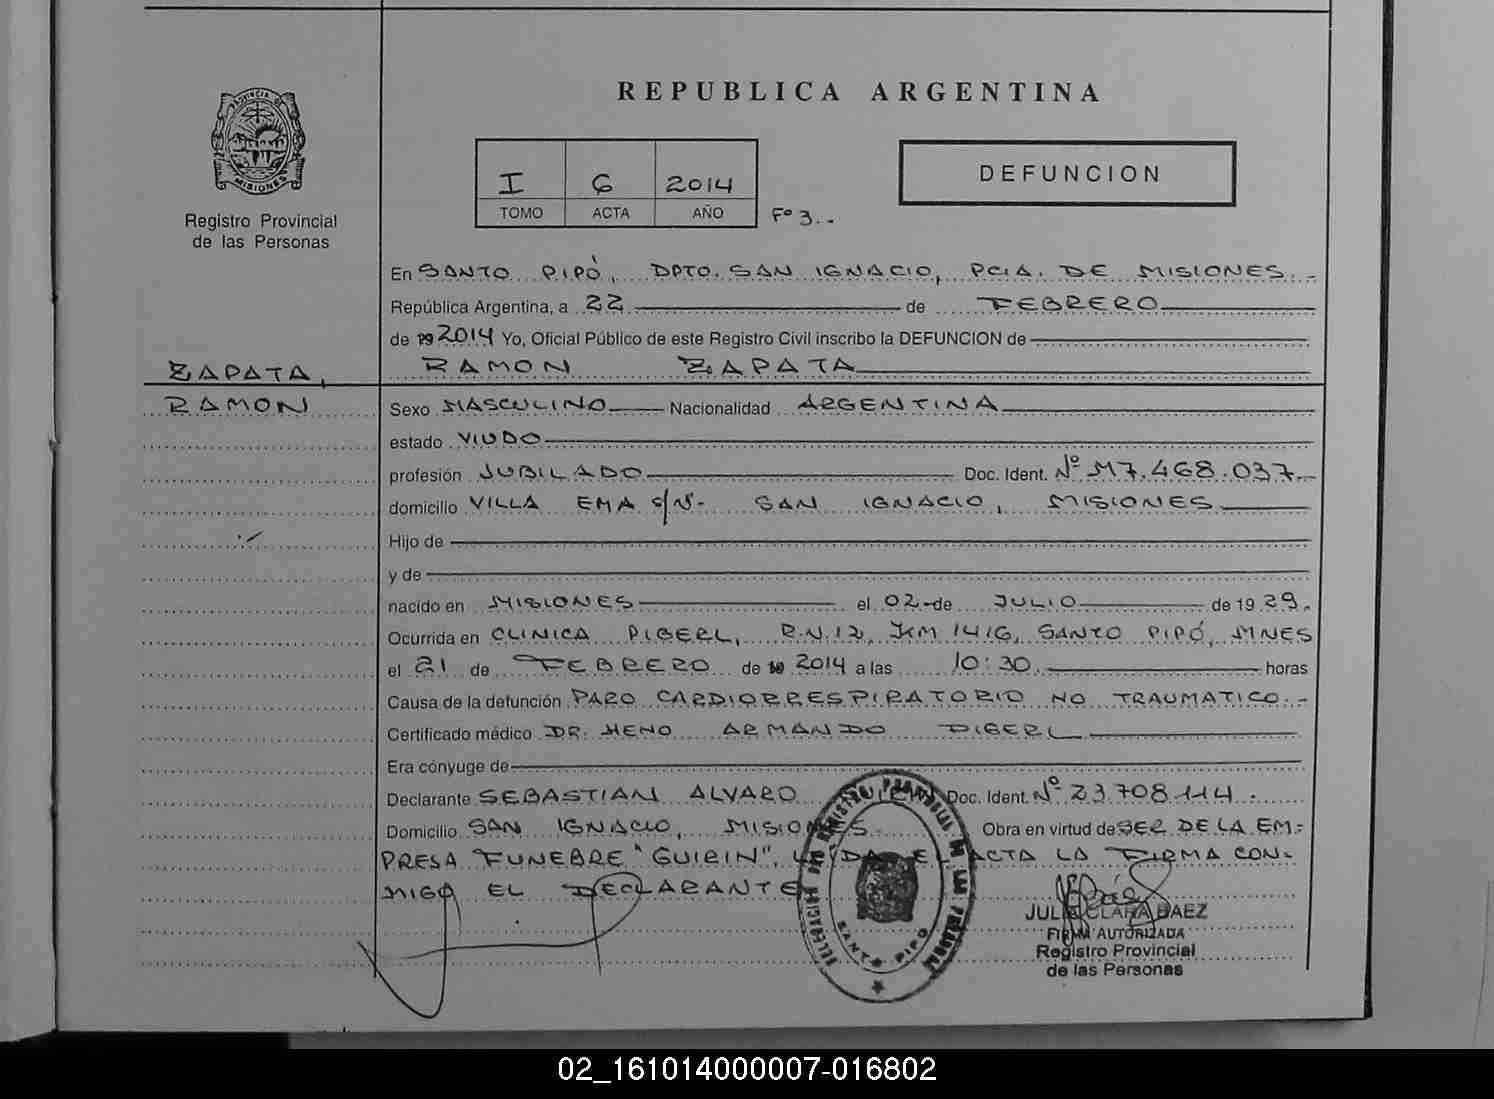 REPUBLICA ARGENTINA
PROVINCIA DE
MISIONES
Registro Provincial
de las Personas
I 6 2014
TOMO ACTA AÑO Fº 3.-
DEFUNCION
En SANTO PIPÓ, DPTO. SAN IGNACIO, PCIA. DE MISIONES.-
República Argentina, a 22 de FEBRERO
de 19 2014 Yo, Oficial Público de este Registro Civil inscribo la DEFUNCION de
RAMON ZAPATA
ZAPATA,
RAMON
Sexo MASCULINO Nacionalidad ARGENTINA
estado VIUDO
profesión JUBILADO Doc. Ident. Nº M7.468.037.-
domicilio VILLA EMA s/Nº- SAN IGNACIO, MISIONES
Hijo de
y de
nacido en MISIONES el 02 de JULIO de 1929.
Ocurrida en CLINICA PIBERL, R.N.12, KM 1416, SANTO PIPÓ, MNES
el 21 de FEBRERO de 19 2014 a las 10:30 horas
Causa de la defunción PARO CARDIORRESPIRATORIO NO TRAUMATICO.-
Certificado médico DR. HENO ARMANDO PIBERL
Era cónyuge de
Declarante SEBASTIAN ALVARO Doc. Ident. Nº 23.708.114.
Domicilio SAN IGNACIO, MISIONES.- Obra en virtud de SER DE LA EM-
PRESA FUNEBRE "GUIRIN", ACTA LA FIRMA CON-
MIGO EL DECLARANTE
DELEGACION DEL REGISTRO PROVINCIAL DE LAS PERSONAS
SANTO PIPO
JULIA CLARA BAEZ
FIRMA AUTORIZADA
Registro Provincial
de las Personas
02_161014000007-016802